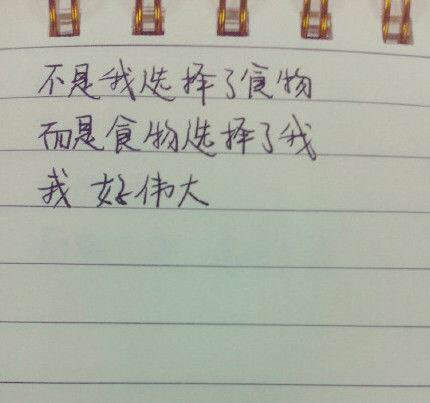 不是我选择了食物
而是食物选择了我
我 好伟大